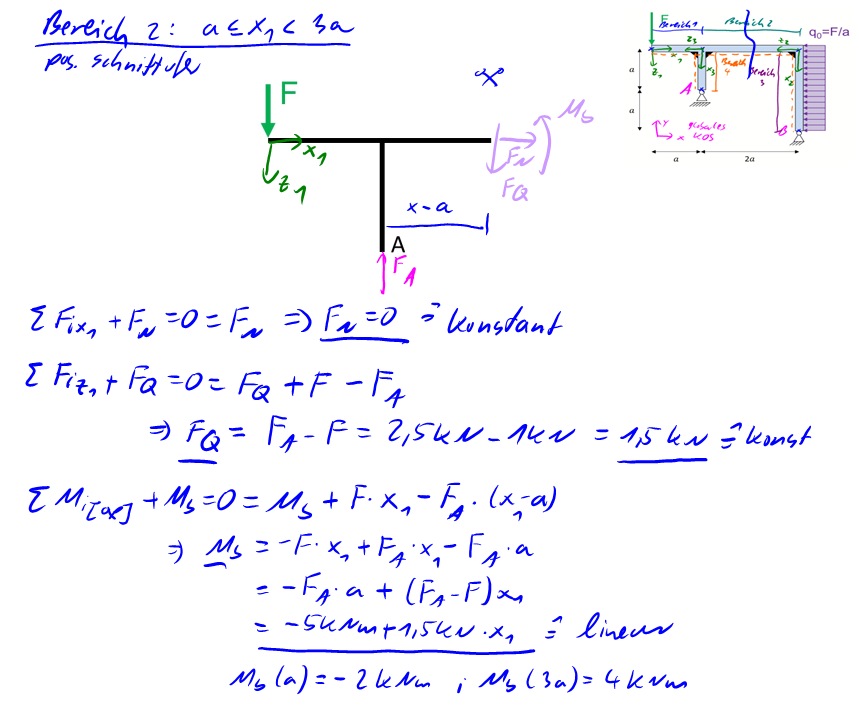 Bereich 2: a ≤ x₁ < 3a
pos. Schnittufer
F
x₁
z₁
M_b
F_N
F_Q
x-a
A
F_A
F
Bereich 1
Bereich 2
q₀=F/a
z₃
z₂
x₁
z₁
x₃
x₂
Bereich 4
Bereich 3
A
B
a
a
y
x
globales KOS
a
2a
Σ F_ix₁ + F_N = 0 = F_N ⇒ F_N = 0 ≙ konstant
Σ F_iz₁ + F_Q = 0 = F_Q + F - F_A
⇒ F_Q = F_A - F = 2,5kN - 1kN = 1,5kN ≙ konst
Σ M_i[ax] + M_b = 0 = M_b + F · x₁ - F_A · (x₁-a)
⇒ M_b = -F · x₁ + F_A · x₁ - F_A · a
= -F_A · a + (F_A-F)x₁
= -5kNm + 1,5kN · x₁ ≙ linear
M_b(a) = -2kNm ; M_b(3a) = 4kNm